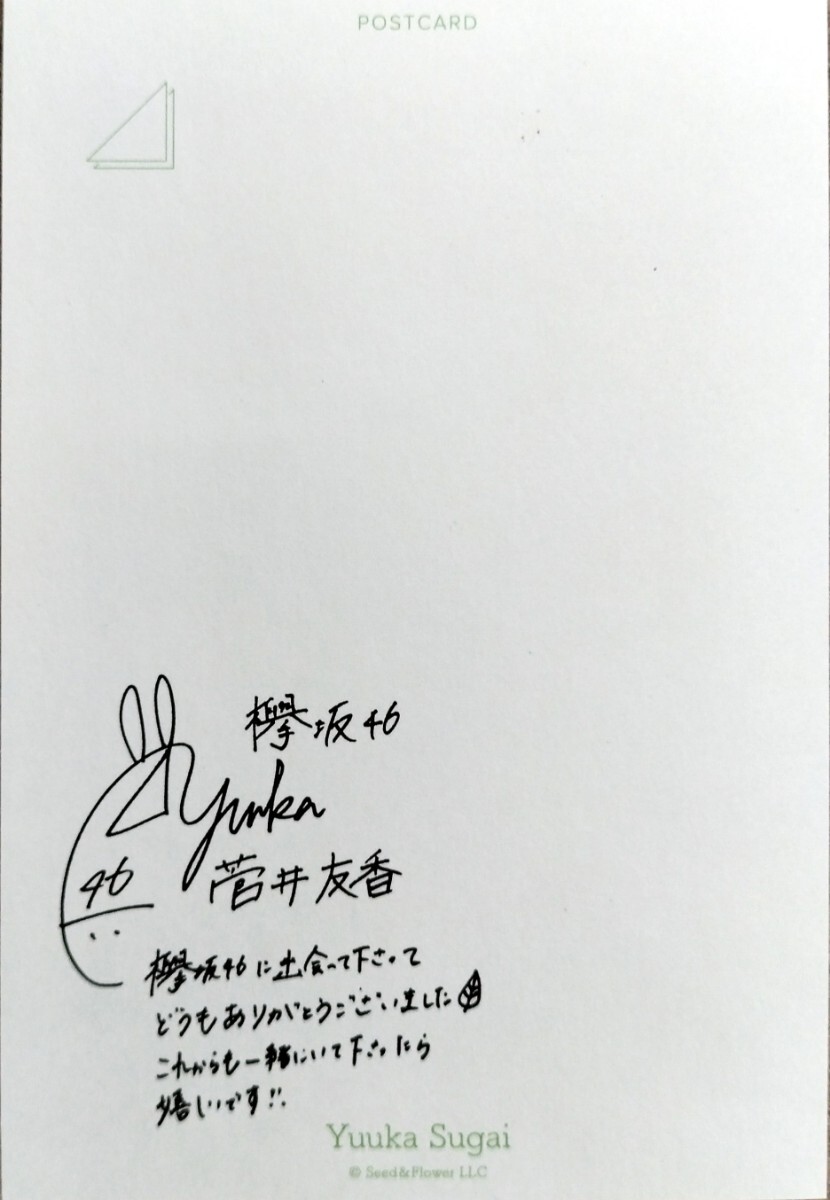 POSTCARD
欅坂46
Yuuka
46
菅井友香
欅坂46に出会って下さって
どうもありがとうございました
これからも一緒にいて下さったら
嬉しいです!!
Yuuka Sugai
© Seed&Flower LLC